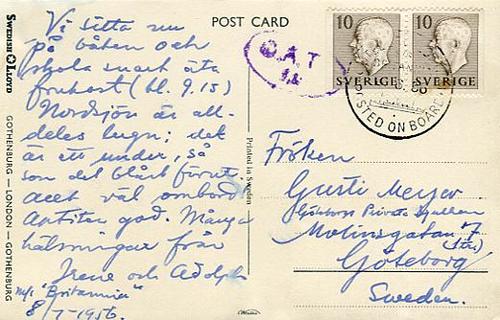 POST CARD
Vi sitta nu
på båten och
skola snart äta
frukost (kl. 9.15)
Nordsjön är all-
deles lugn; det
är ett under, så
som det blåst förut.
Allt väl ombord
Aptiten god. Många
hälsningar från
Irene och Adolph
M/S "Britannia"
8/7-1956.
SWEDISH LLOYD
GOTHENBURG — LONDON — GOTHENBURG
Printed in Sweden
O.A.T
10
SVERIGE
10
SVERIGE
POSTED ON BOARD
Fröken
Gusti Meyer
Göteborgs Privata
Molinsgatan 7
Göteborg
Sweden.